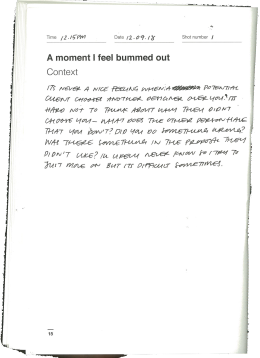 Time 12.15PM Date 12.09.18 Shot number 1
A moment I feel bummed out
Context
ITS NEVER A NICE FEELING WHEN A POTENTIAL
CLIENT CHOOSES ANOTHER DESIGNER OVER YOU. ITS
HARD NOT TO THINK ABOUT WHY THEY DIDN'T
CHOOSE YOU - WHAT DOES THE OTHER PERSON HAVE
THAT YOU DON'T? DID YOU DO SOMETHING WRONG?
WAS THERE SOMETHING IN THE PROPOSAL THEY
DIDN'T LIKE? I'LL LIKELY NEVER KNOW SO I TRY TO
JUST MOVE ON BUT ITS DIFFICULT SOMETIMES.
18